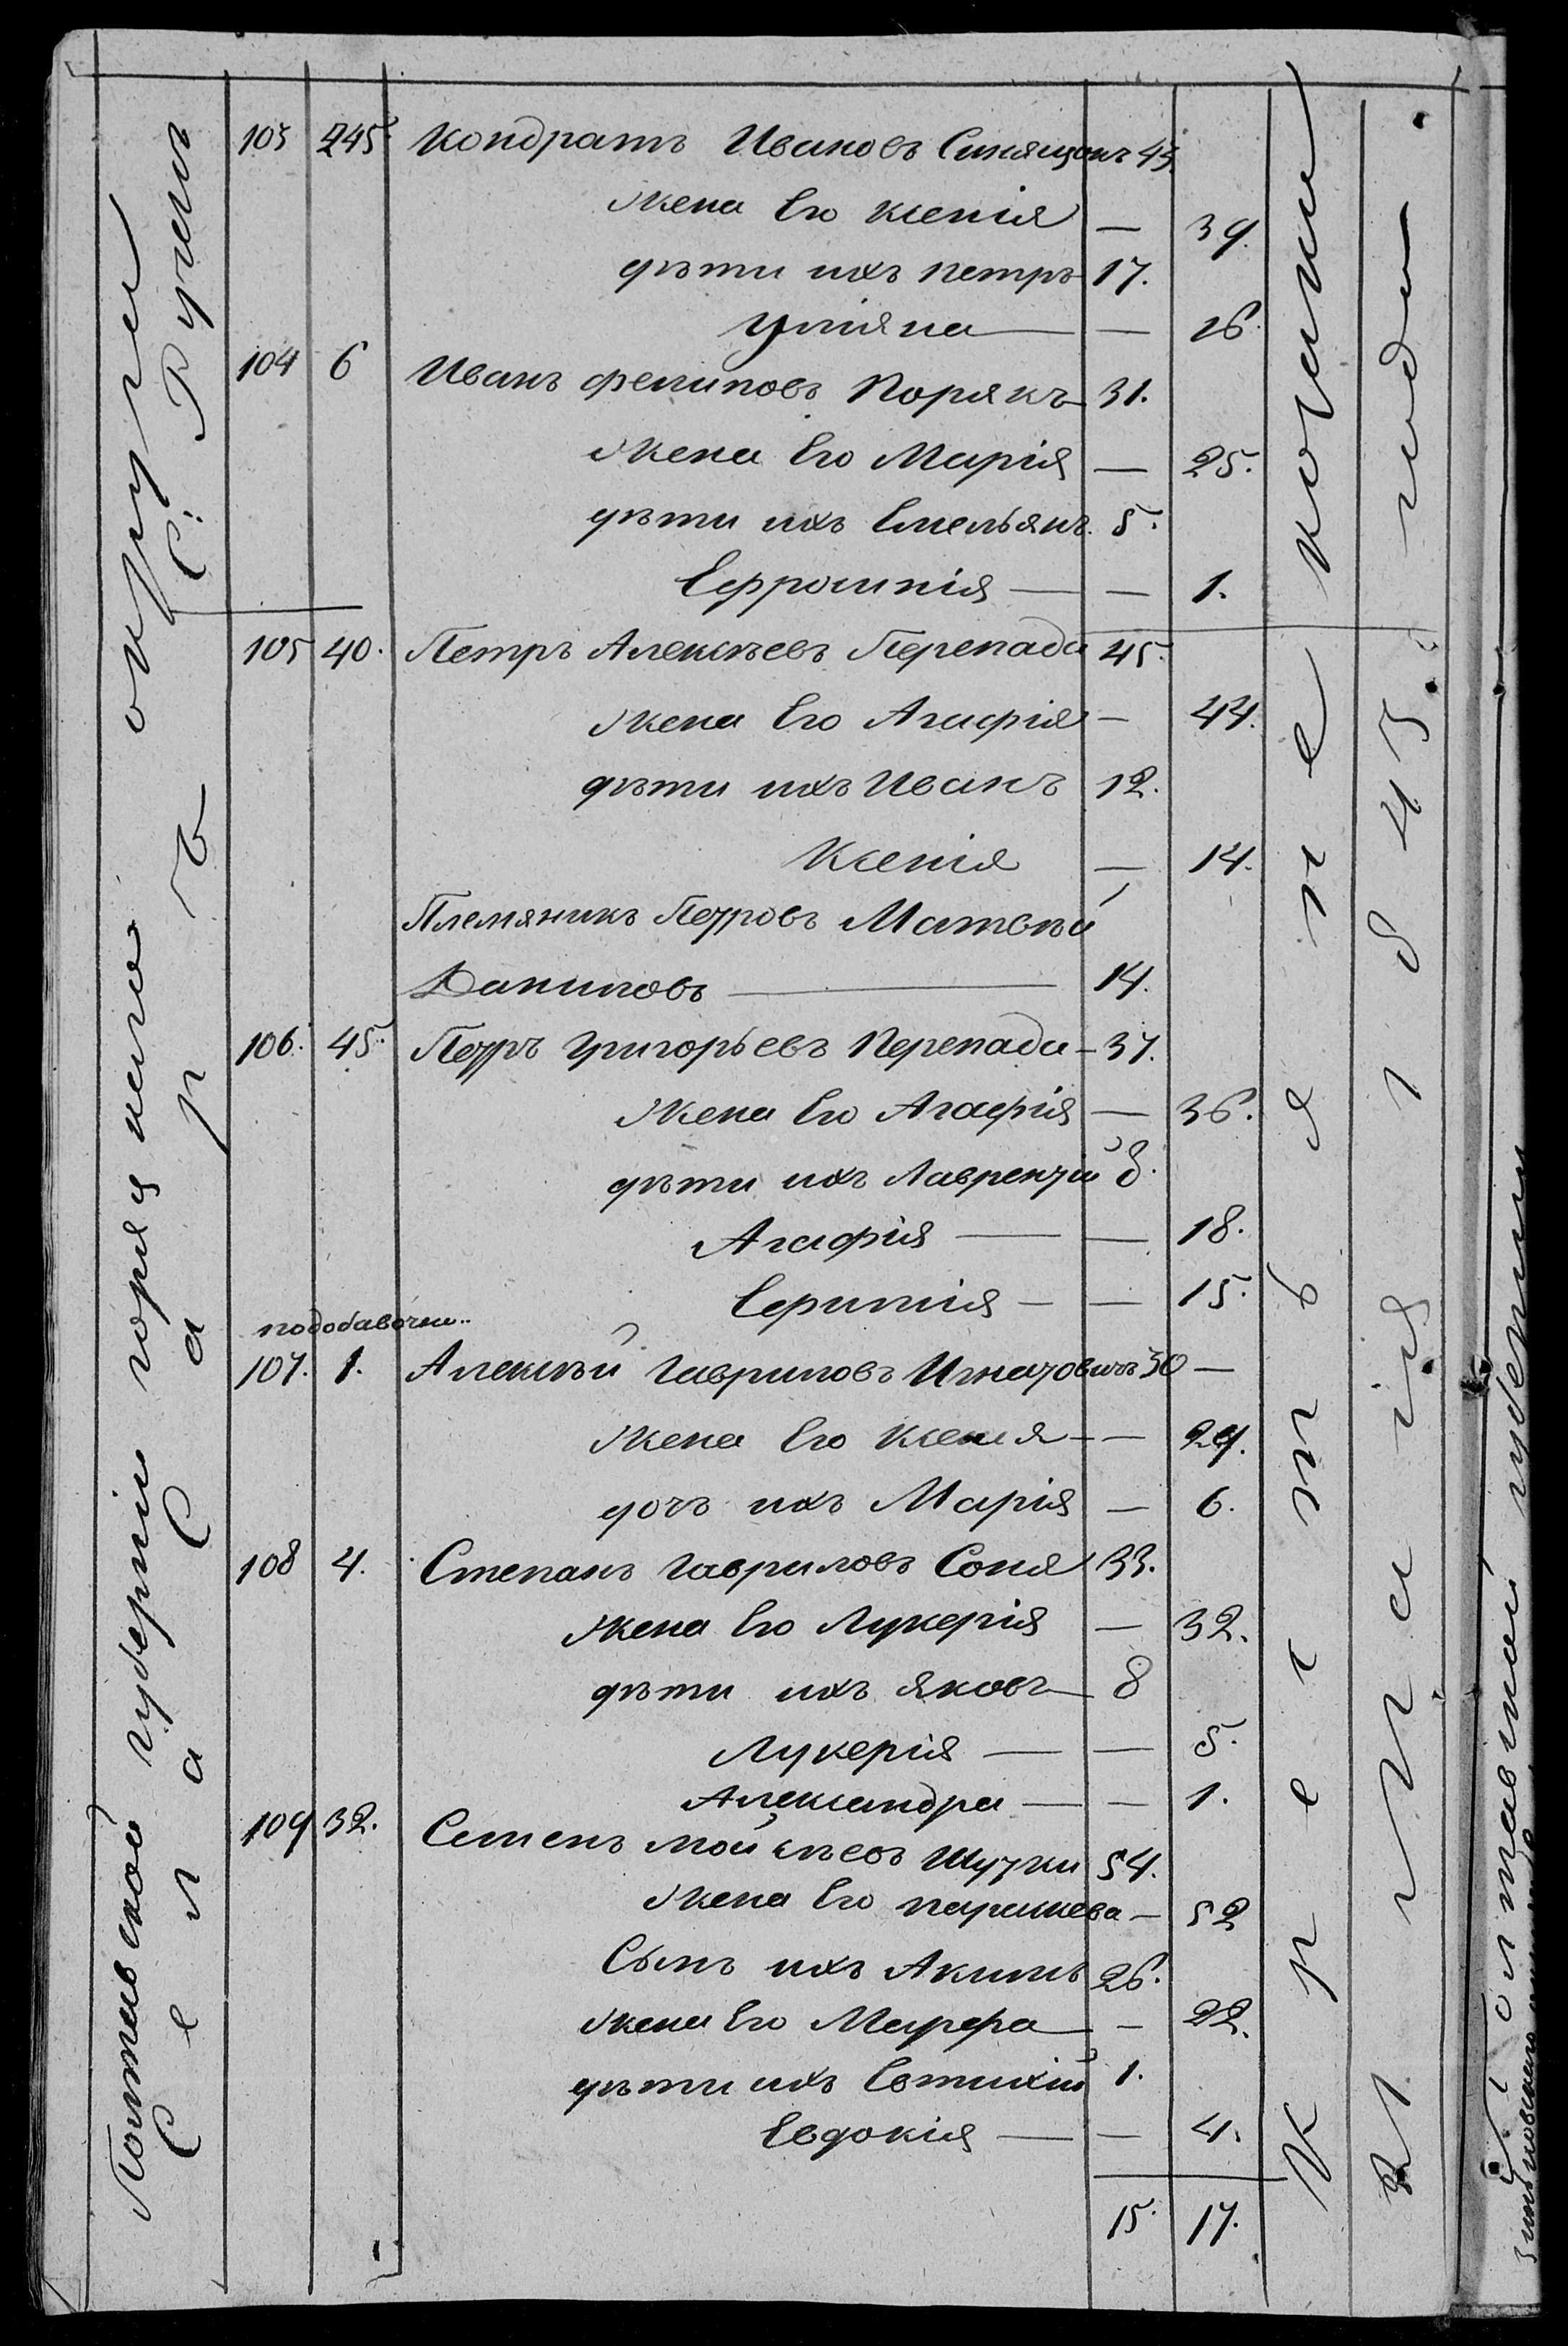 103 245 Кондратъ Ивановъ 43.
жена Его Ксенія — 39.
дѣти ихъ Петръ 17.
Уліяна — 16
104 6 Иванъ Филиповъ Порякъ 31.
жена Его Марія — 25.
дѣти ихъ Емельянъ 5.
Ефросинія — 1.
105 40. Петръ Алексѣевъ Перепада 45.
жена Его Агафія — 44.
дѣти ихъ Иванъ 12.
Ксенія — 14.
Племяникъ Петровъ Матвѣй
Даниловъ — 14.
106. 45. Петръ Григорьевъ Перепада 37.
жена Его Агафія — 36.
дѣти ихъ Лаврентій 8.
Агафія — 18.
— 15.
107. 1. Алексѣй Гавриловъ Игнатовичъ 30 —
жена Его Ксенія — 29.
дочъ ихъ Марія — 6.
108 4. Степанъ Гавриловъ Соня 33.
жена Его Лукерія — 32.
дѣти ихъ Яковъ 8
Лукерія — 5.
Александра — 1.
109 32. Семенъ Мойсѣевъ 54.
жена Его Парашкева — 52
Сынъ ихъ Акимъ 26.
жена Его Марфа — 22.
дѣти ихъ Евтихій 1.
Евдокія — 4.
15. 17.
Полтавской губерніи округи
Села Сара съ
крестьяне
21 1843. года
Полтавской губерніи